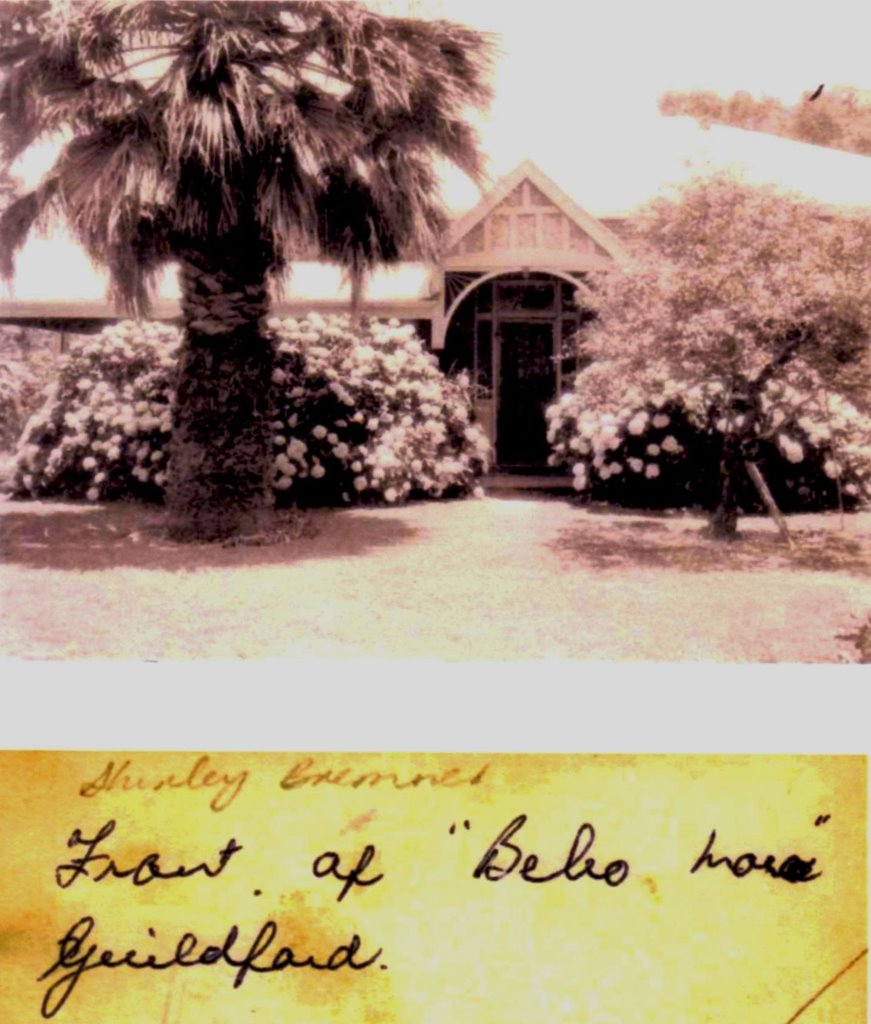 Shirley Bremner
Front of "Bebo mora"
Guildford.